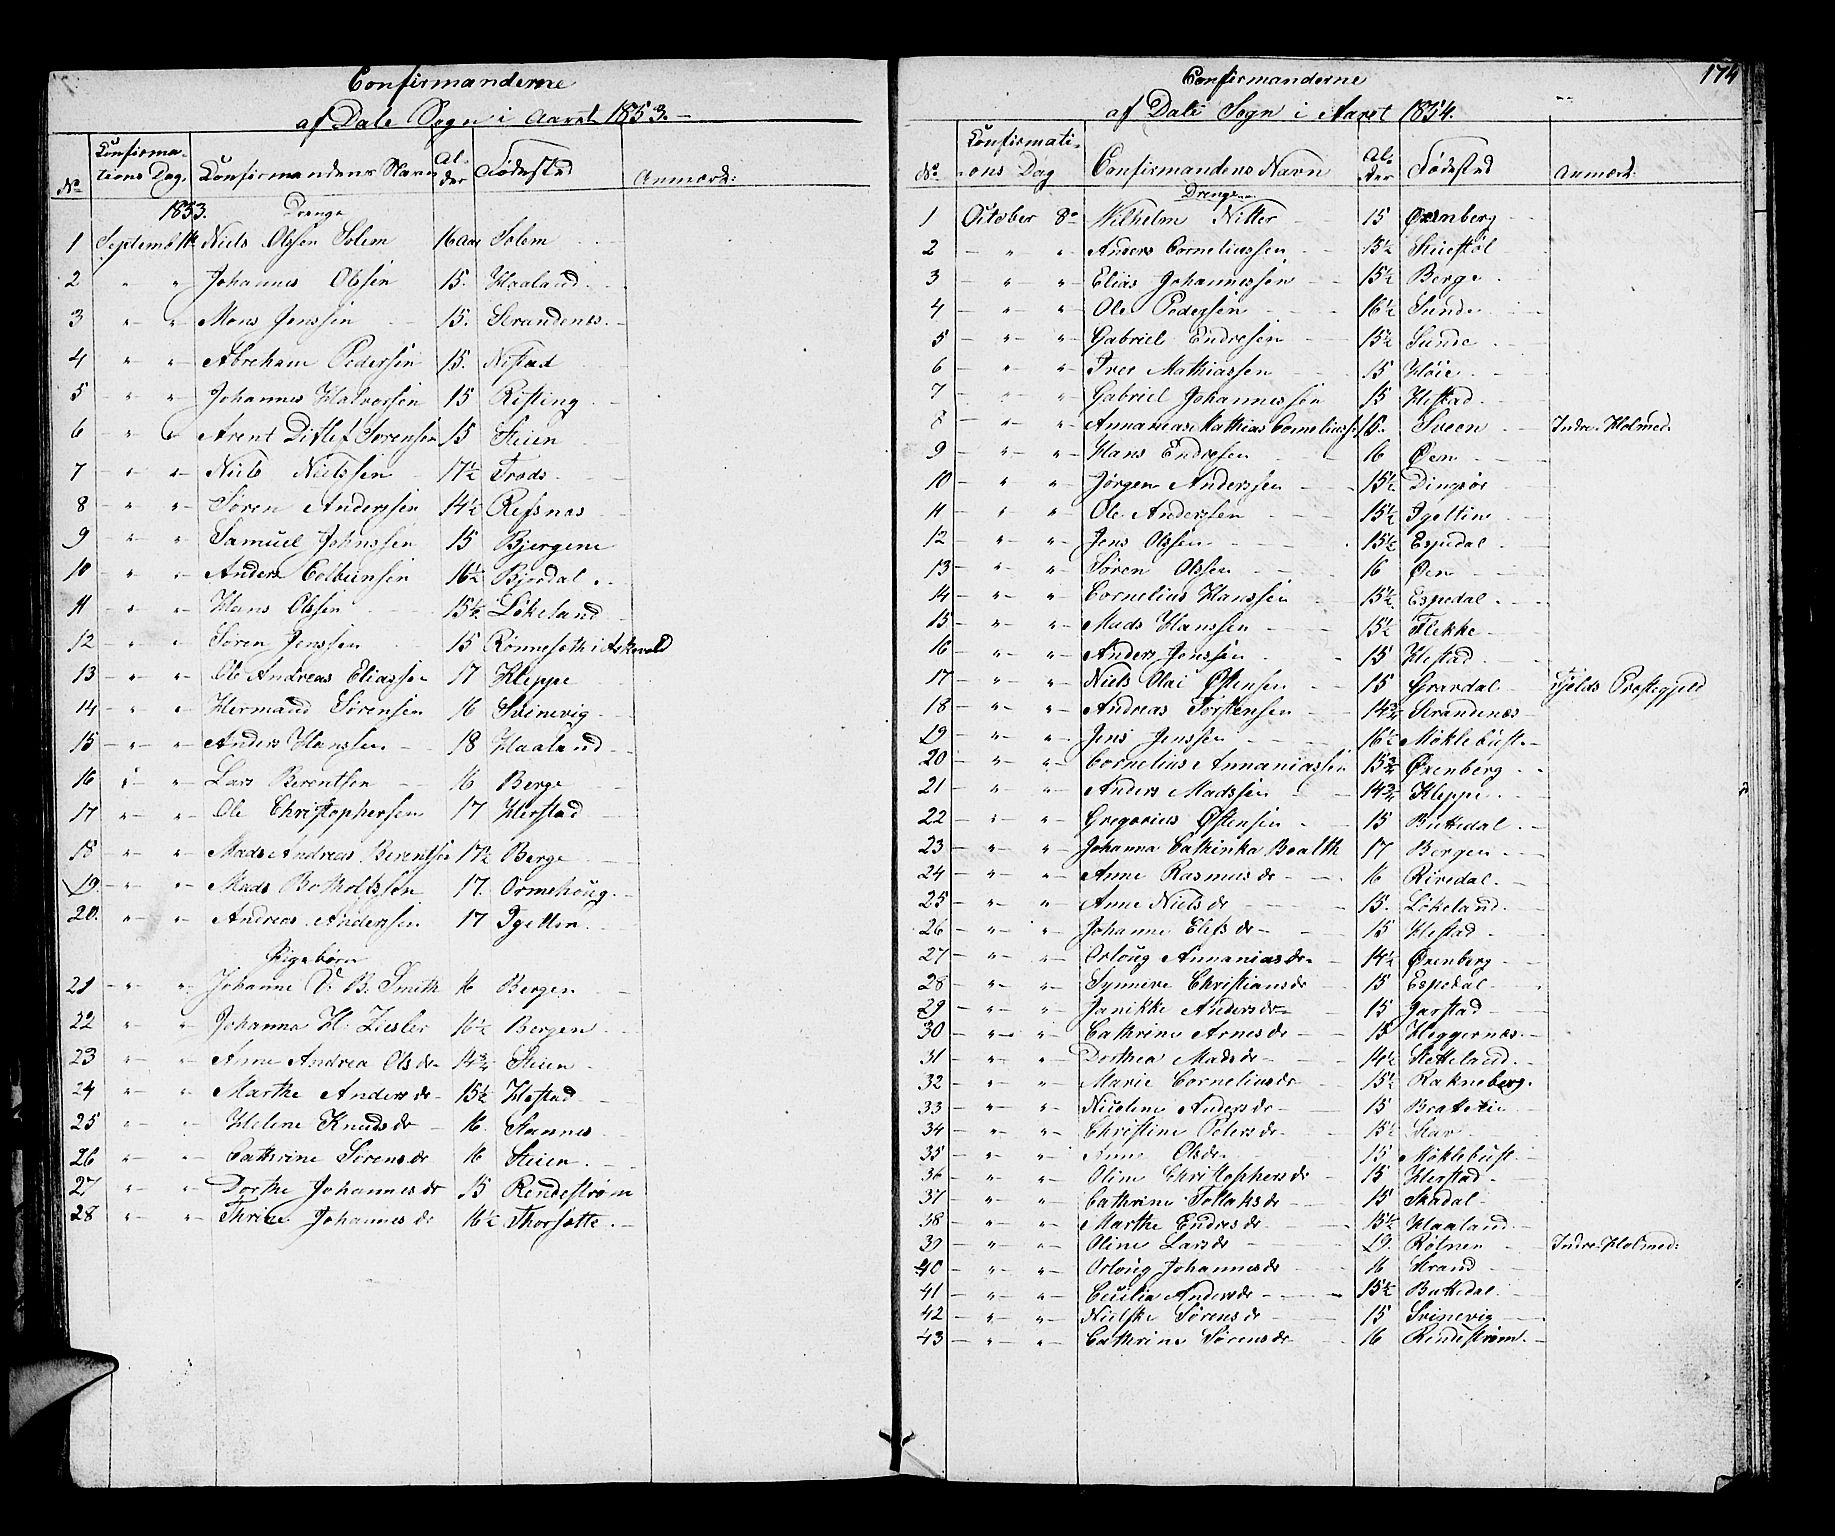 Confirmanderne
af Dale Sogn i Aaret 1853.
No Confirmations Dag. Confirmandens Navn Alder Födested Anmærk:
1853. Drenge
1 Septemb: Niels Olssen Solem 16 Aar Solem
2 " " Johannes Olssen 15. Haaland
3 " " Mons Jenssen 15. Strandenæs
4 " " Abreham Pederssen 15. Nistad
5 " " Johannes Halvorssen 15 Risting
6 " " Arent Ditlef Sørensen 15 Steien
7 " " Niels Nielssen 17½ Trods
8 " " Søren Anderssen 14½ Refsnæs
9 " " Samuel Johnssen 15 Bjergene
10 " " Anders Colbensen 16½ Bjordal
11 " " Hans Olssen 15½ Lökeland
12 " " Søren Jenssen 15 Rönnesæth i Askevold
13 " " Ole Andreas Eliassen 17 Kleppe
14 " " Hermand Sörensen 16 Svinevig
15 " " Anders Hanssen 18 Haaland
16 " " Lars Berentsen 16 Berge
17 " " Ole Christophersen 17 Herstad
18 " " Mads Andreas Berentsen 17½ Berge
19 " " Mads Botholfssen 17. Ormehoug
20. " " Andreas Anderssen 17 Igelten
Pigebørn
21 " " Johanne V. B. Smith 16 Bergen
22 " " Johanna H. Ziesler 16½ Bergen
23 " " Anne Andrea Olsdr 14¾ Steien
24 " " Marthe Andersdr 15½ Hestad
25 " " Helene Knudsdr 16. Stannes
26 " " Cathrine Sörensdr 16 Steien
27 " " Dorthe Johannesdr 15 Rendeström
28 " " Thrine Johannesdr 16½ Thorsætte
174
Confirmanderne
af Dale Sogn i Aaret 1854.
No Confirmations Dag Confirmandens Navn Alder Födested Anmærk:
Drenge
1 October 8de Wilhelm Nitter 15 Ørenberg
2 " " Anders Corneliussen 15½ Stuestøl
3 " " Elias Johannessen 15½ Berge
4 " " Ole Pedersen 16½ Sunde
5 " " Gabriel Endresen 15½ Sunde
6 " " Iver Mathiassen 15 Høie
7 " " Gabriel Johannessen 15 Hestad
8 " " Annanias Mathias Corneliuss. 16. Sveen Indre-Holmed:
9 " " Hans Endresen 16 Øen
10 " " Jørgen Anderssen 15½ Dingsör
11 " " Ole Anderssen 15½ Igelten
12 " " Jens Olssen 15½ Espedal
13 " " Søren Olssen 16 Øen
14 " " Cornelius Hanssen 15½ Espedal
15 " " Mads Hanssen 15½ Flekke
16 " " Anders Jonssen 15 Hestad
17 " " Niels Olai Østensen 15 Gravdal Fjelds Præstegjeld
18 " " Andreas Torstensen 14¾ Strandenæs
19 " " Jens Jenssen 16½ Möklebust
20 " " Cornelius Annaniassen 15¾ Ørenberg
21 " " Anders Madssen 14¾ Kleppe
22 " " Gregorius Østensen 15 Buttedal
23 " " Johanna Cathinka Boalth 17 Bergen
24 " " Anne Rasmusdr 16 Rivedal
25 " " Anne Nielsdr 15. Lökeland
26 " " Johanne Elifsdr 15 Hestad
27 " " Orloug Annaniasdr 14½ Ørenberg
28 " " Synneve Christiansdr 15 Espedal
29 " " Janikke Andersdr 15 Jarstad
30 " " Cathrine Arnesdr 15 Heggernæs
31 " " Dorthea Madsdr 14½ Hetteland
32 " " Marie Corneliusdr 15½ Rakneberg
33 " " Nicoline Andersdr 15 Brattelie
34 " " Christine Petersdr 15½
35 " " Anne Olsdr 15 Möklebust
36 " " Oline Christophersdr 15 Herstad
37 " " Cathrine Tollaksdr 15 Skadal
38 " " Marthe Endresdr 15½ Haaland
39 " " Oline Larsdr 19. Rölnen Indre-Holmed:
40 " " Orloug Johannesdr 16 Strand
41 " " Cecilia Andersdr 15½ Buttedal
42 " " Nielske Sørensdr 15 Svinevig
43 " " Cathrine Sørensdr 16 Rendeström